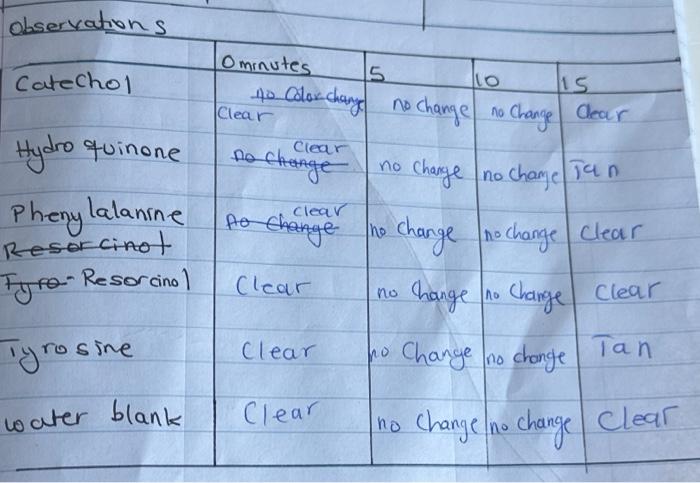 Observations
0 minutes 5 10 15
Catechol no Color change no change no Change Clear
Clear
Hydroquinone Clear
no Change no Change no Change Tan
Phenylalanine clear
no Change no Change no change Clear
Resorcinol
Tyro- Resorcinol Clear no Change no Change Clear
Tyrosine Clear no Change no change Tan
water blank Clear no Change no change Clear